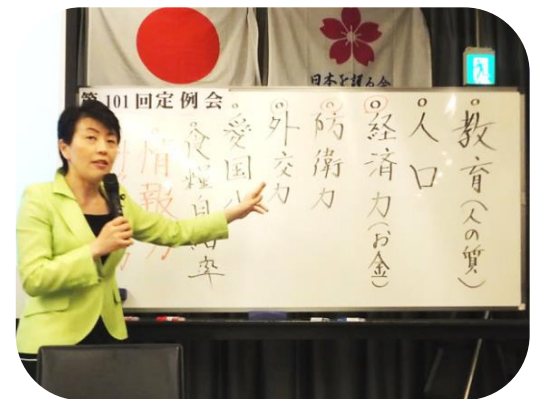 日本を護る会
第101回定例会
教育(人の質)
人口
経済力(お金)
防衛力
外交力
愛国心
食糧自給率
情報力